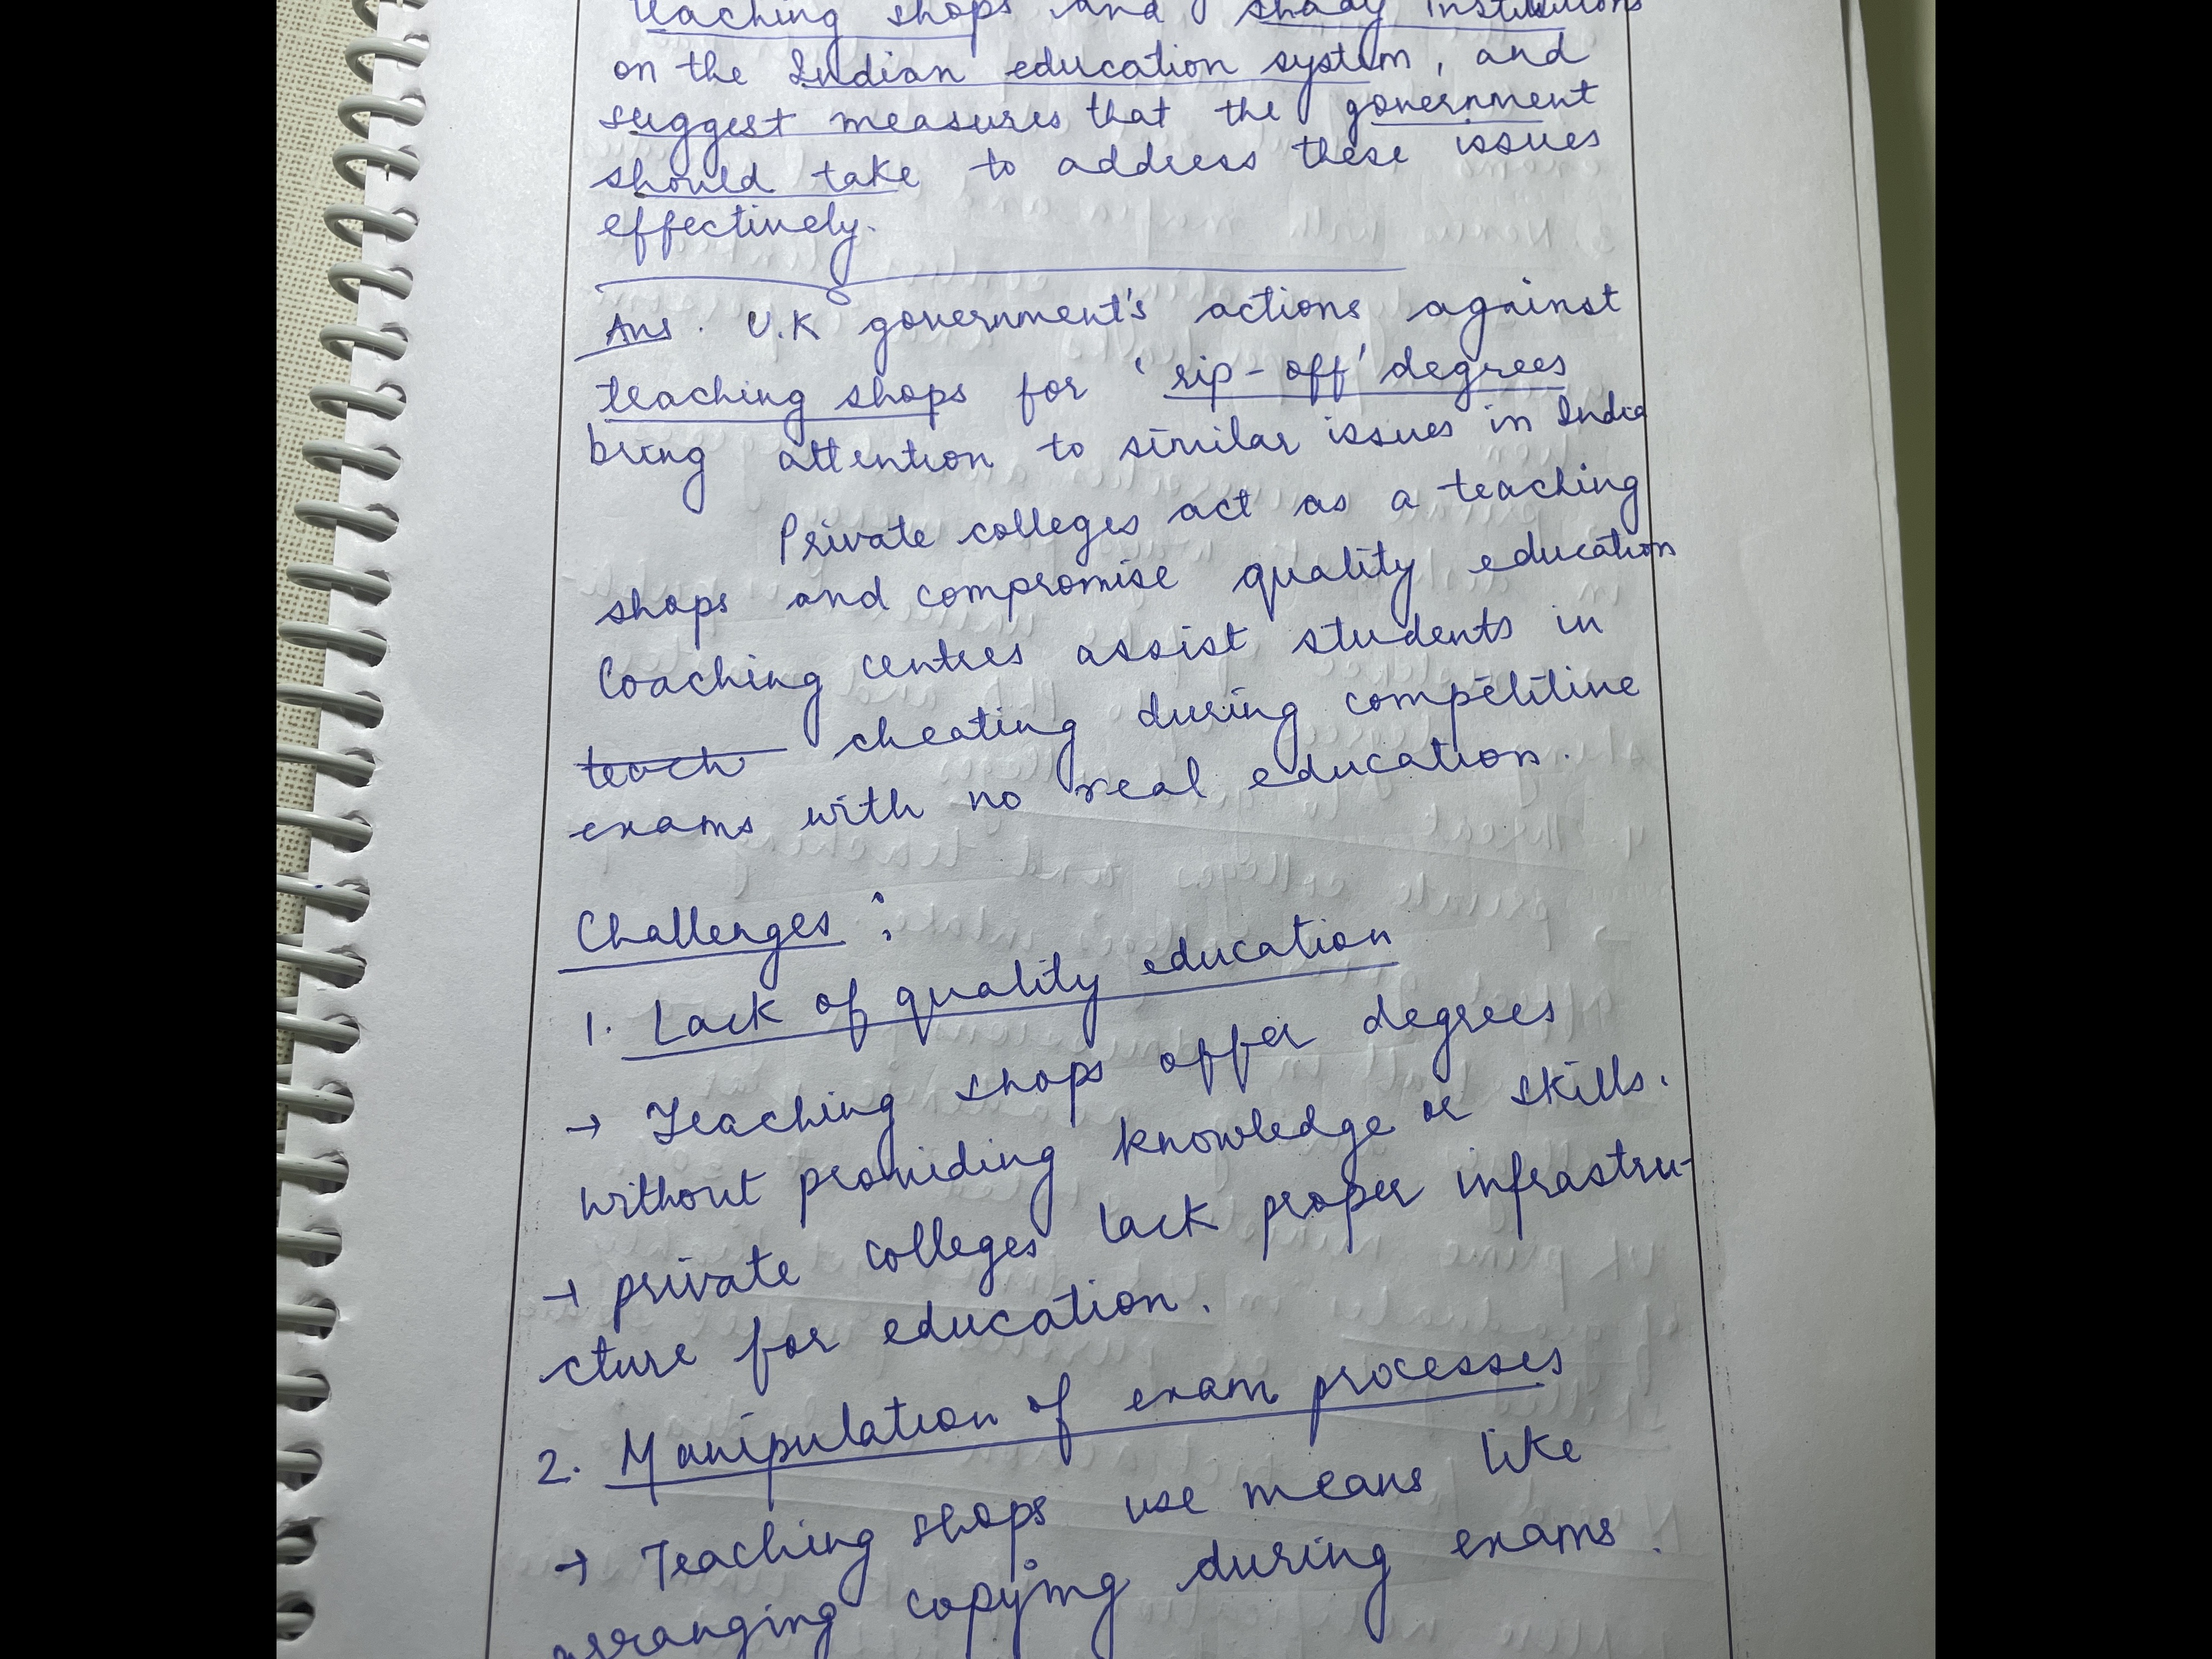 teaching shops and shady institutions
on the Indian education system, and
suggest measures that the government
should take to address these issues
effectively.
Ans. U.K government's actions against
teaching shops for 'rip-off' degrees
bring attention to similar issues in India
Private colleges act as a teaching
shops and compromise quality education
Coaching centres assist students in
teach cheating during competitive
exams with no real education.
Challenges :
1. Lack of quality education
→ Teaching shops offer degrees
without providing knowledge or skills.
→ private colleges lack proper infrastru-
cture for education.
2. Manipulation of exam processes
→ Teaching shops use means like
arranging copying during exams.